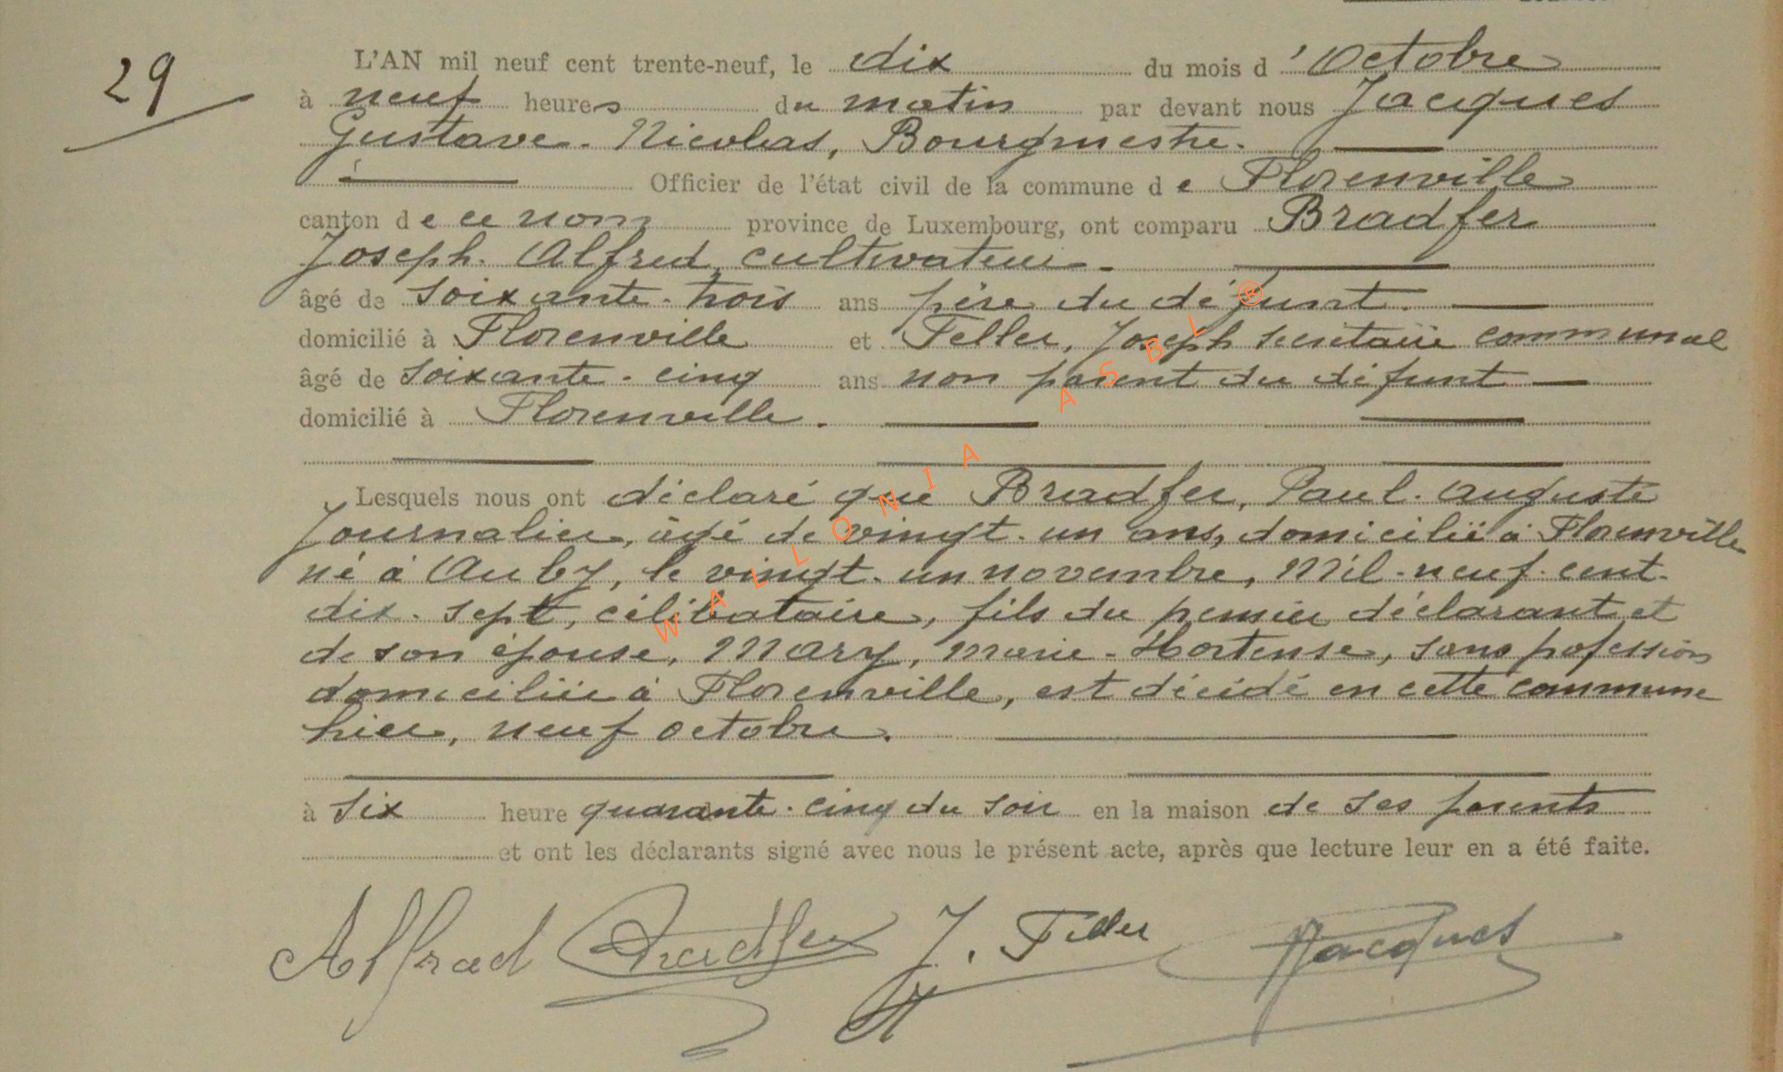 29
L'AN mil neuf cent trente-neuf, le dix du mois d'Octobre
à neuf heures du matin par devant nous Jacques
Gustave-Nicolas, Bourgmestre.
Officier de l'état civil de la commune de Florenville
canton de ce nom province de Luxembourg, ont comparu Bradfer
Joseph-Alfred, cultivateur
âgé de soixante-trois ans père du défunt.
domicilié à Florenville et Feller, Joseph secrétaire communal
âgé de soixante-cinq ans non parent du défunt
domicilié à Florenville.
Lesquels nous ont déclaré que Bradfer, Paul-Auguste
Journalier, âgé de vingt-un ans, domicilié à Florenville
né à Auby, le vingt-un novembre, mil-neuf-cent-
dix-sept, célibataire, fils du premier déclarant et
de son épouse, Mary, Marie-Hortense, sans pofession
domiciliée à Florenville, est décédé en cette commune
hier, neuf octobre.
à six heure quarante-cinq du soir en la maison de ses parents
et ont les déclarants signé avec nous le présent acte, après que lecture leur en a été faite.
Alfred Bradfer J. Feller Jacques
WALLONIA ASBL ®